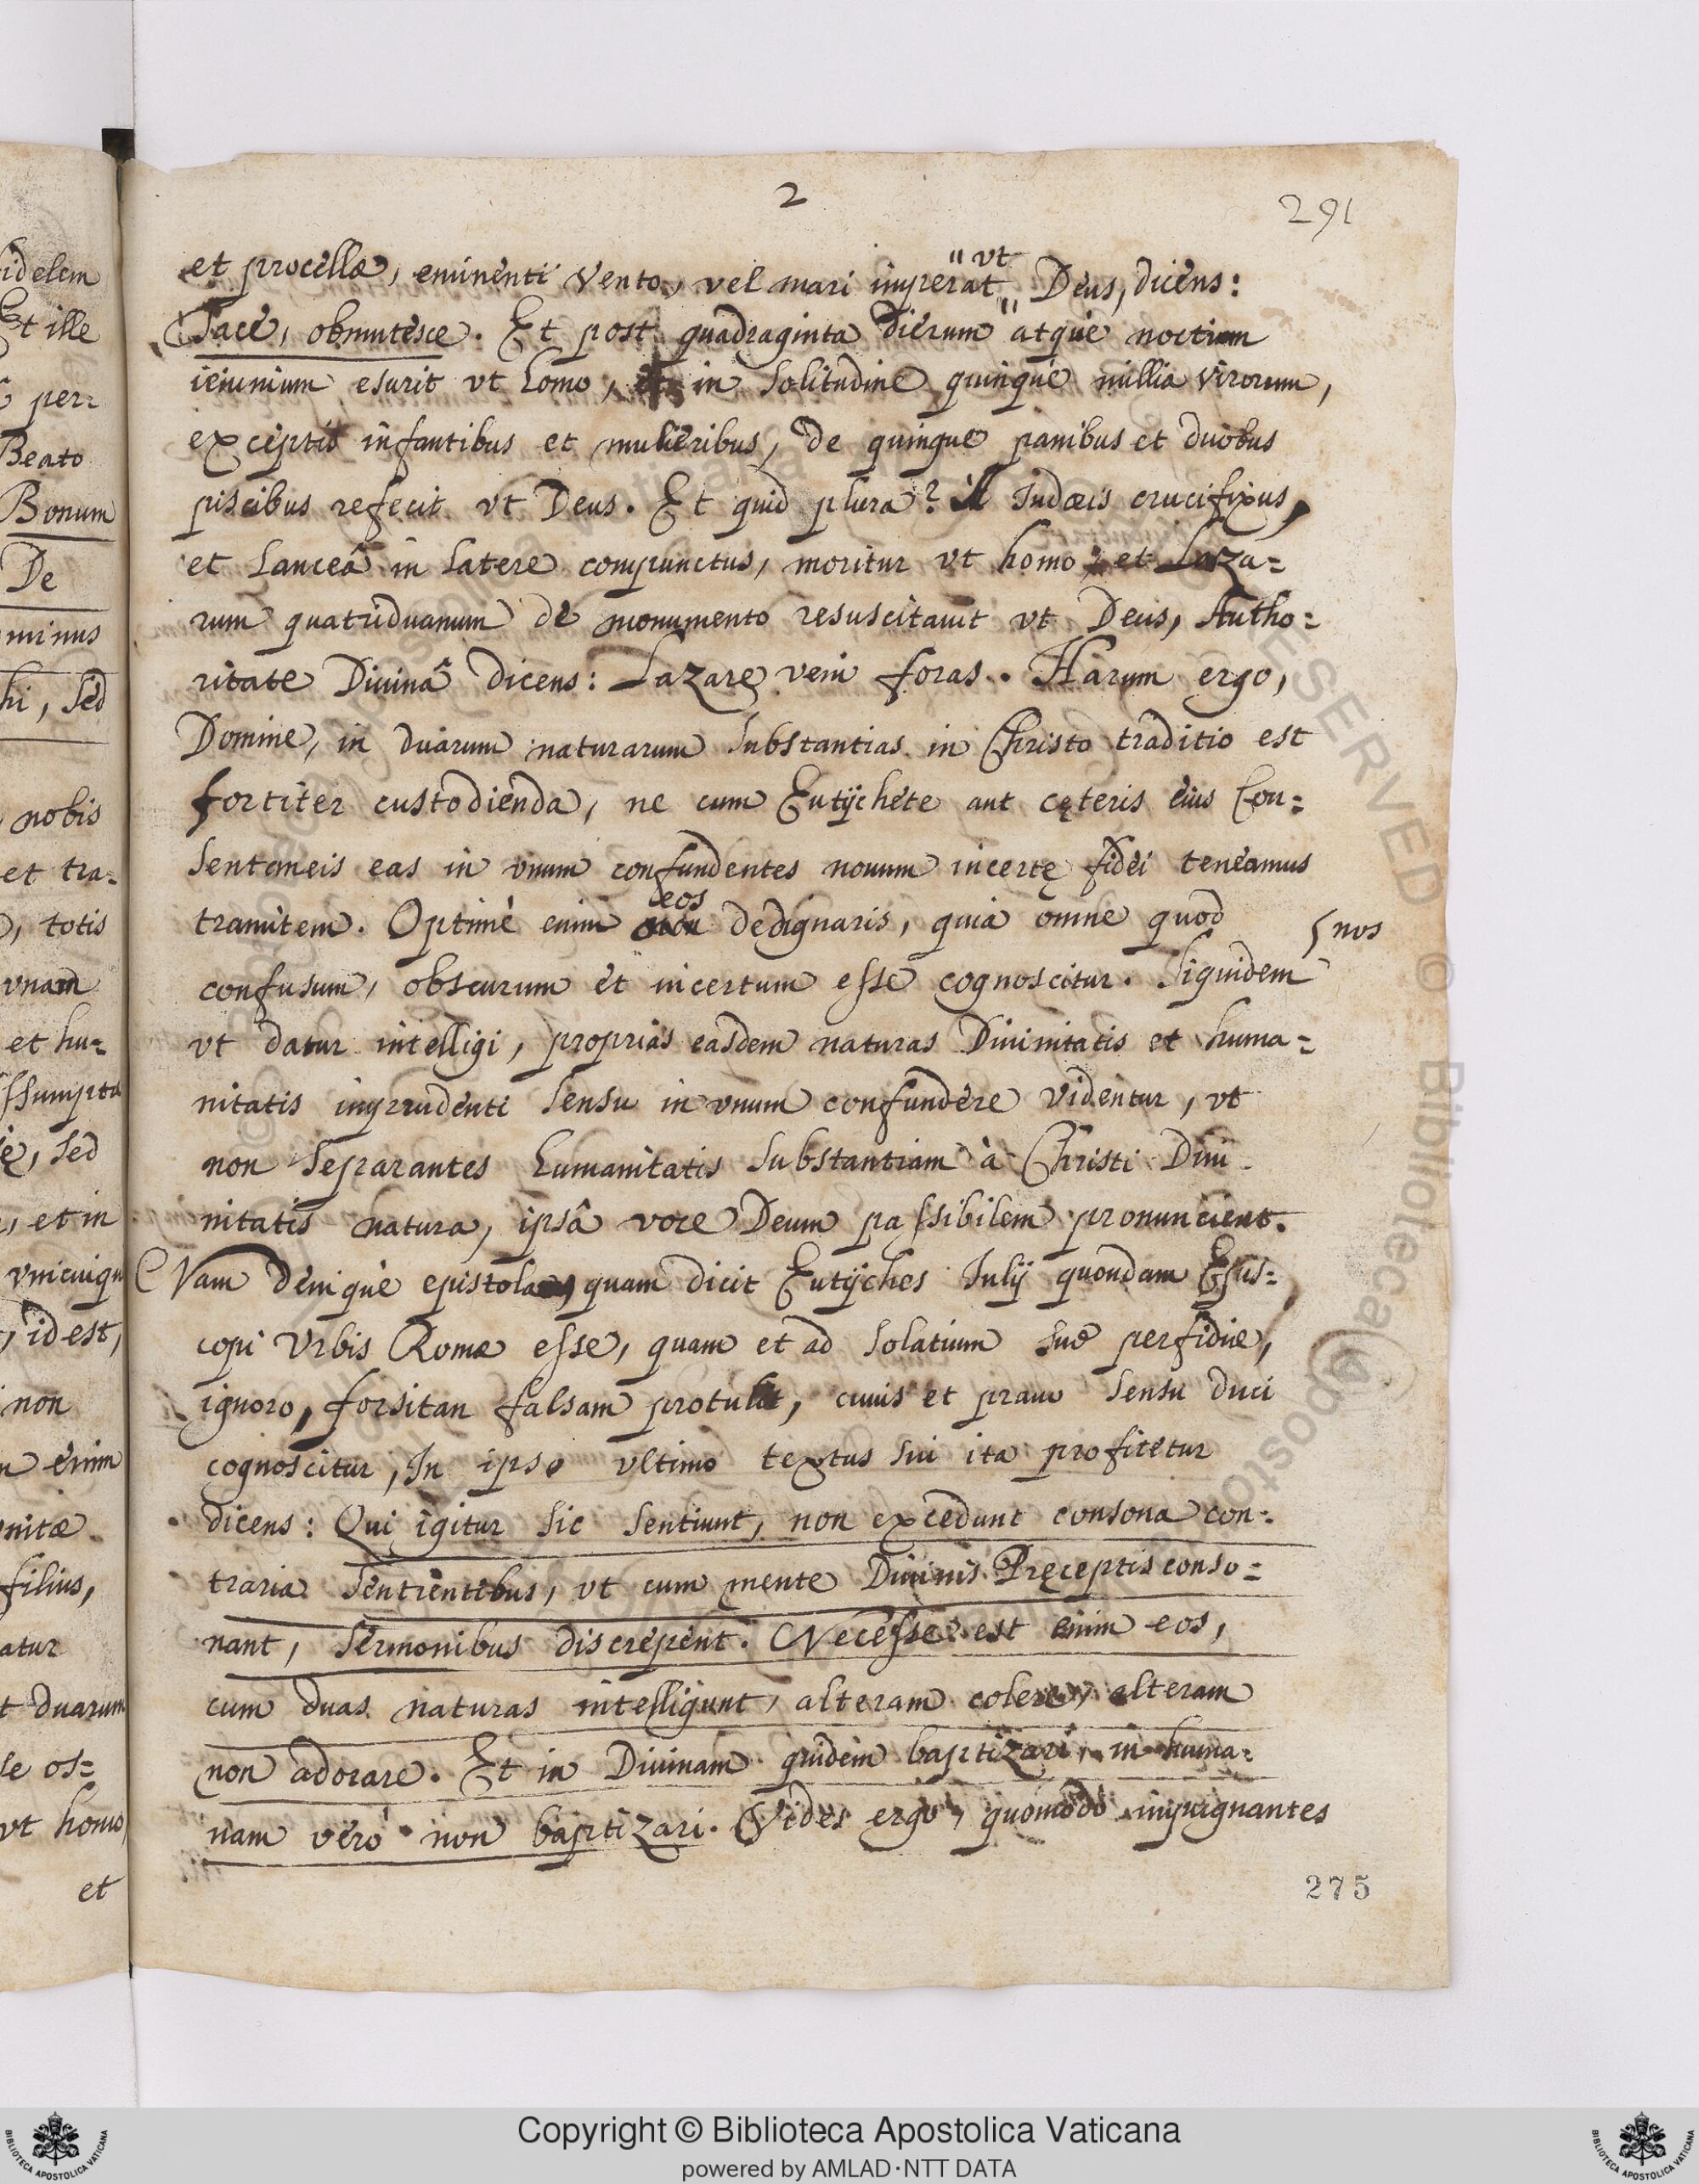 2
291
et procellæ, eminenti vento, vel mari imperat "vt" Deus, dicens:
Tace, obmutesce. Et post quadraginta dierum atque noctium
ieiunium esurit vt homo, et in solitudine quinque millia virorum,
exceptis infantibus et mulieribus, de quinque panibus et duobus
piscibus refecit vt Deus. Et quid plura? A Iudæis crucifixus,
et lanceâ in latere compunctus, moritur vt homo; et Laza=
rum quatriduanum de monumento resuscitauit vt Deus, Autho=
ritate Diuinâ dicens: Lazare veni foras. Harum ergo,
Domine, in duarum naturarum substantias in Christo traditio est
fortiter custodienda, ne cum Eutÿchete aut cęteris eius Con=
sentaneis eas in vnum confundentes nouum incertę fidei teneamus
tramitem. Optimè enim eos dedignaris, quia omne quod
nos
confusum, obscurum et incertum esse cognoscitur. Siquidem
vt datur intelligi, proprias easdem naturas Diuinitatis et huma=
nitatis imprudenti sensu in vnum confundere videntur, vt
non separantes humanitatis substantiam à Christi Diui
nitatis natura, ipsâ voce Deum passibilem pronuncient.
Nam denique epistola, quam dicit Eutÿches Iulij quondam Epis=
copi Vrbis Romæ esse, quam et ad solatium suę perfidiæ,
ignoro, forsitan falsam protulit, cuius et prauo sensu duci
cognoscitur, In ipso vltimo textus sui ita profitetur
dicens: Qui igitur sic sentiunt, non excedunt consona con=
traria sentientibus, vt cum mente Diuinis Pręceptis conso=
nant, sermonibus discrepent. Necesse est enim eos,
cum duas naturas intelligunt, alteram colere, alteram
non adorare. Et in Diuinam quidem baptizari, in huma=
nam verò non baptizari. Vides ergo, quomodo impugnantes
275
idelem
Et ille
per=
Beato
Bonum
De
minus
hi, sed
nobis
et tra=
totis
vnam
et hu=
ssumpta
sed
et in
vnicuiqu
id est,
non
enim
nitæ
filius,
atur
t duarum
se os=
vt homo
et
Copyright © Biblioteca Apostolica Vaticana
powered by AMLAD·NTT DATA